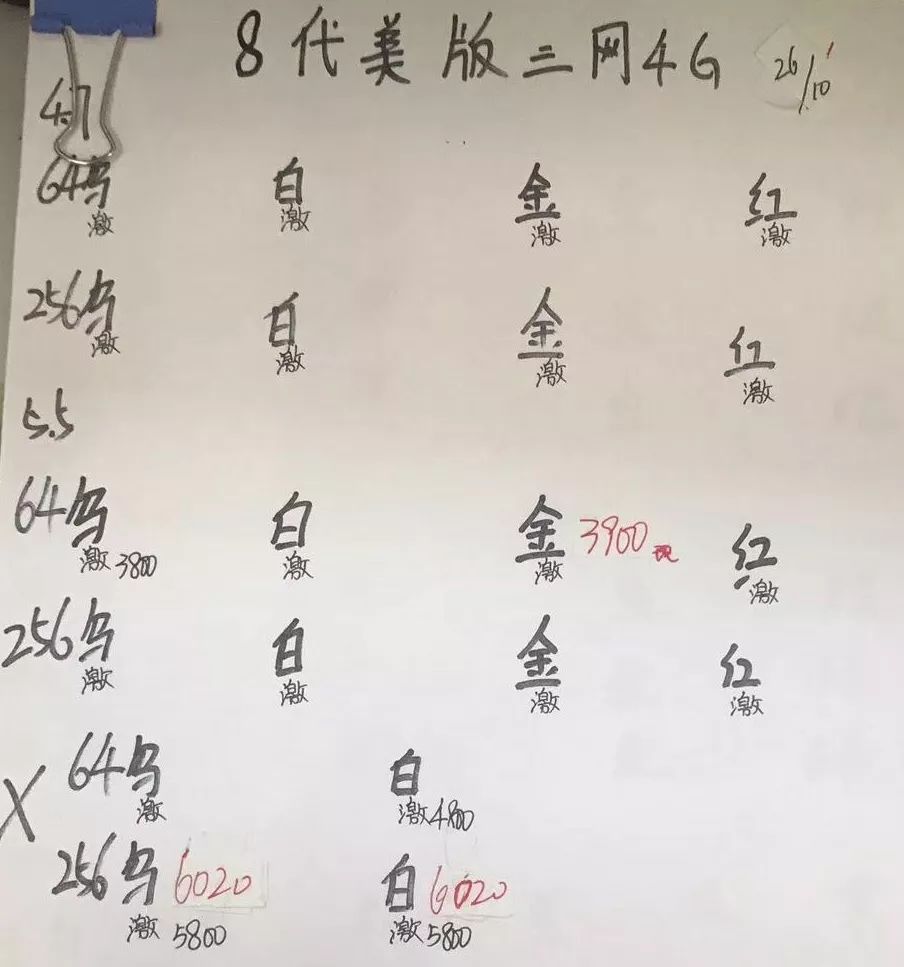 8代美版三网4G 26/10
4.7
64乌 白 金 红
激 激 激 激
256乌 白 金 红
激 激 激 激
5.5
64乌 白 金 3900 现 红
激 3800 激 激 激
256乌 白 金 红
激 激 激 激
X 64乌 白
激 激 4800
256乌 6020 白 6020
激 5800 激 5800